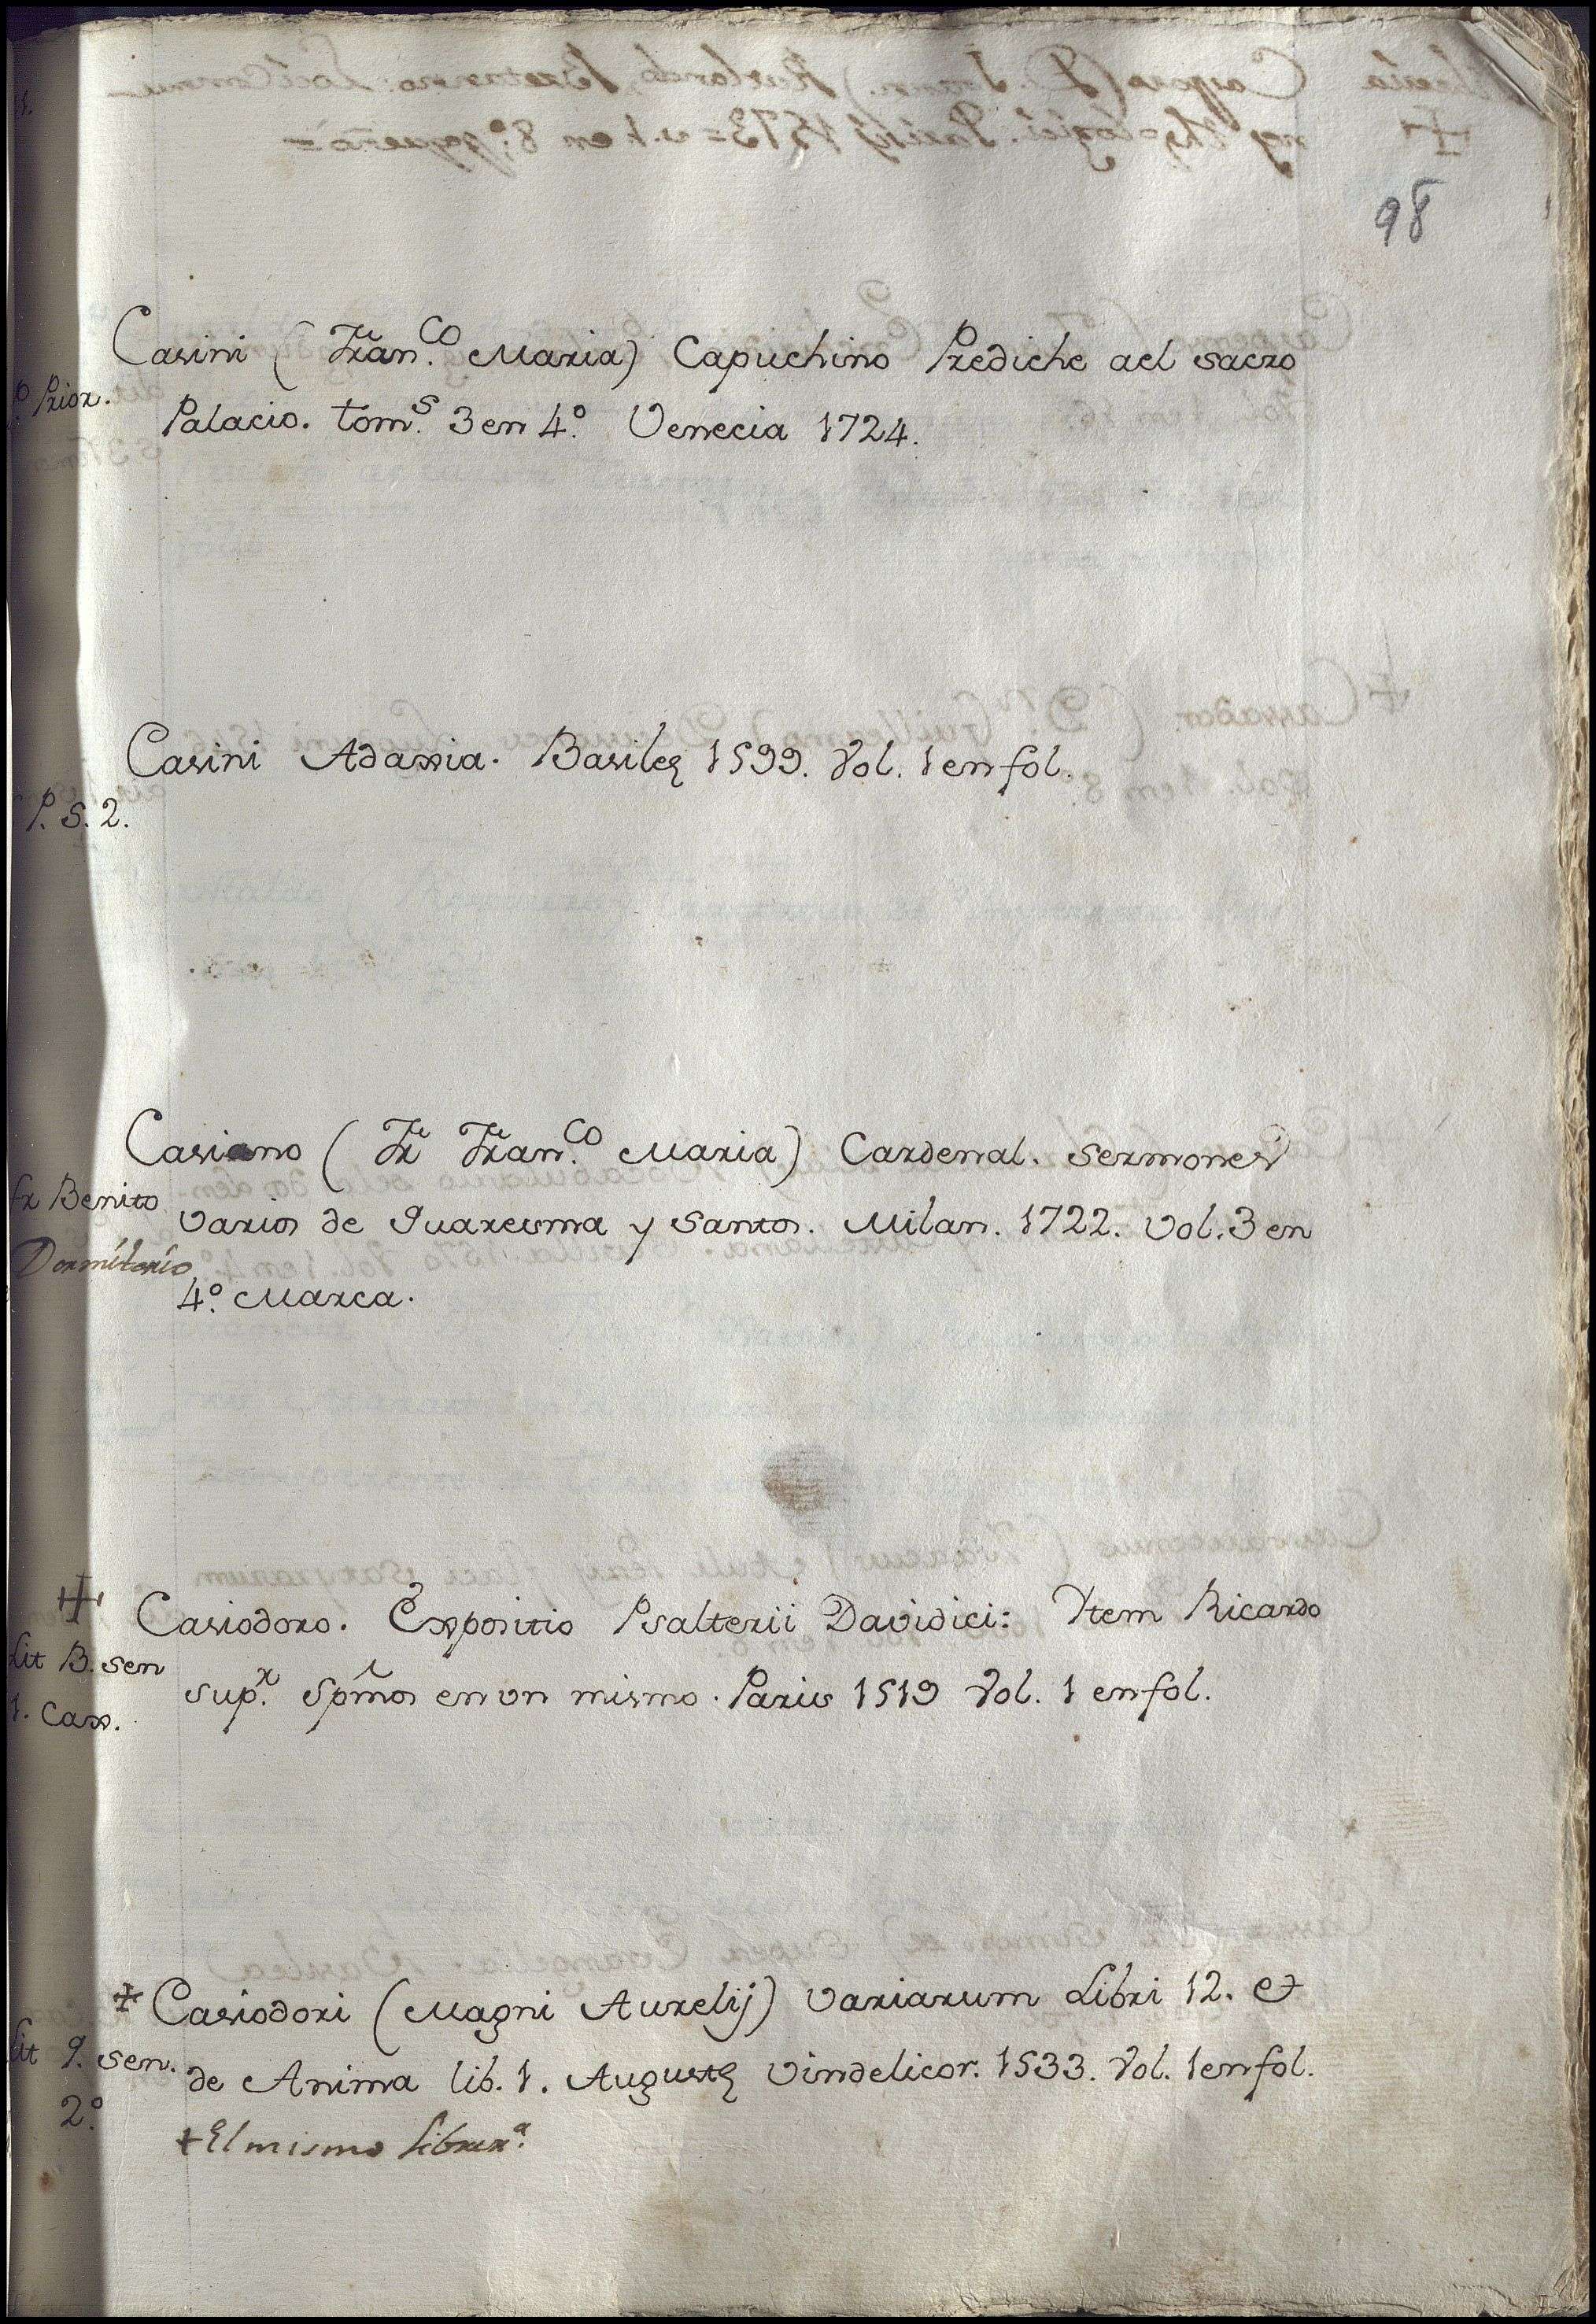 98
Casini (Fran.co Maria) Capuchino Prediche ael sacro
P.o Prior.
Palacio. tom.s 3 en 4.o Venecia 1724.
Casini Adaxia. Basileę 1599. Vol. 1 en fol.
P. S. 2.
Casiano (Fr Fran.co Maria) Cardenal. Sermones
fr Benito
varios de quaresma y santos. Milan. 1722. Vol. 3 en
Dormitorio
4.o Marca.
+ Casiodoro. Expositio Psalterii Davidici: Ytem Ricardo
Lit B. sen
sup.r Spmos en un mismo. Paris 1519 Vol. 1 en fol.
1. Cax.
+ Casiodori (Magni Aurelij) Variarum Libri 12. et
Lit 9. sen.
de Anima lib. 1. Augustę Vindelicor. 1533. Vol. 1 en fol.
2.o
+ El mismo Librer.a